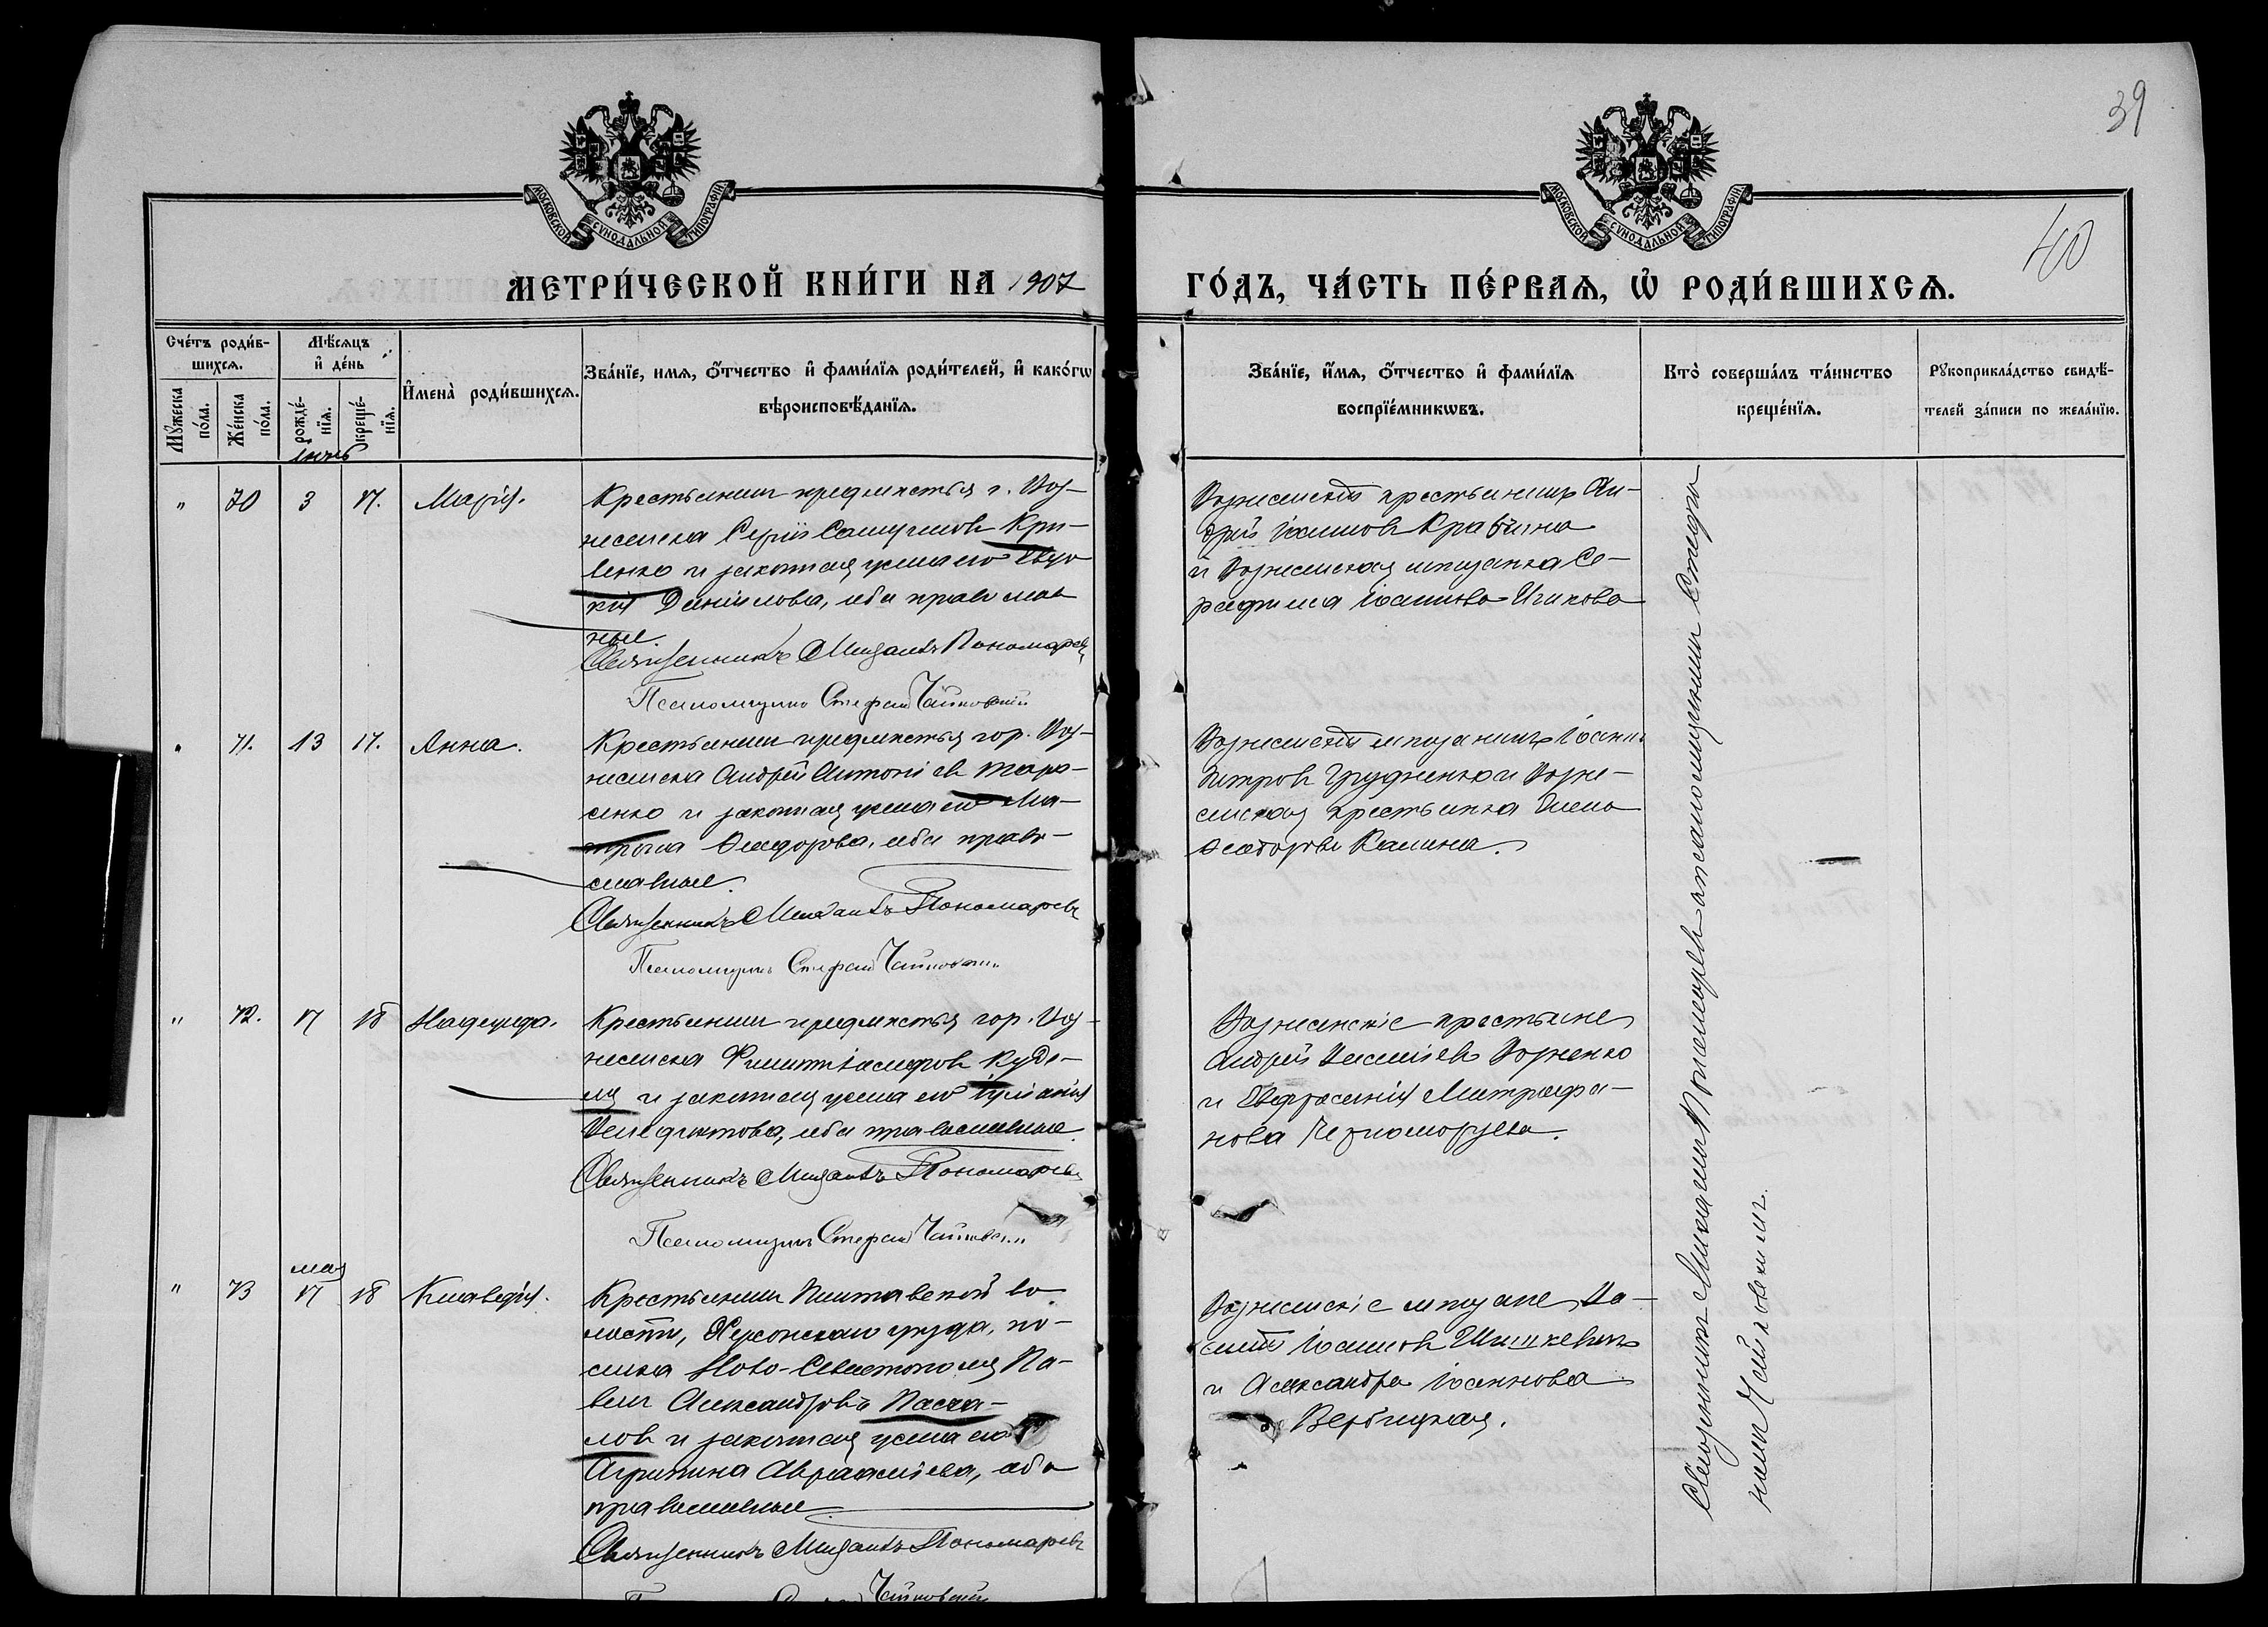 39
40
МОСКОВСКОЙ СѴНОДАЛЬНОЙ ТИПОГРАФІИ
МОСКОВСКОЙ СѴНОДАЛЬНОЙ ТИПОГРАФІИ
МЕТРИ́ЧЕСКОЙ КНИ́ГИ НА 1907
ГО́ДЪ, ЧА́СТЬ ПЕ́РВАѦ, Ѡ҆ РОДИ́ВШИХСѦ.
Сче́тъ роди́в-
шихсѧ.
Мꙋ́жеска по́ла.
Же́нска по́ла.
Мѣ́сѧцъ
и҆ де́нь
рожде́-
нїѧ.
креще́-
нїѧ.
И҆мена̀ роди́вшихсѧ.
Зва́нїе, имѧ, ѻ҆́тчество и҆ фами́лїѧ роди́телей, и҆ како́гѡ
вѣроисповѣ́данїѧ.
Зва́нїе, и҆́мѧ, ѻ҆́тчество и҆ фами́лїѧ
воспрїе́мникѡвъ.
Кто̀ соверша́лъ та́инство
креще́нїѧ.
Рꙋкоприкла́дство свидѣ́-
телей за́писи по жела́нїю.
" 70 3 17. Марія.
Крестьянинъ предмѣстья г. Воз-
несенска Сергій Самуиловъ Кри-
венко и законная жена его Евдо
кія Даніилова, оба православ
ные.
Священникъ Михаилъ Пономаревъ
Псаломщикъ Стефанъ Чайковскій
Вознесенскій крестьянинъ Ан-
дрей Іоанновъ Кравчина
и Вознесенская мѣщанка Се-
рафима Іоаннова
" 71. 13 17. Анна.
Крестьянинъ предмѣстья гор. Воз-
несенска Андрей Антоніевъ Тара-
сенко и законная жена его Ма-
трона Ѳеодорова, оба право-
славные.
Священникъ Михаилъ Пономаревъ
Псаломщикъ Стефанъ Чайковскій
Вознесенскій мѣщанинъ Іоаннъ
Петровъ и Возне-
сенская крестьянка Елена
Ѳеодорова Калина.
" 72. 17 18 Надежда.
Крестьянинъ предмѣстья гор. Воз-
несенска Филиппъ Іосифовъ Куде-
ля и законная жена его Іуліанія
Венедиктова, оба православные.
Священникъ Михаилъ Пономаревъ
Псаломщикъ Стефанъ Чайковскій
Вознесенскіе крестьяне
Андрей Василіевъ
и Евфросинія Митрофа-
нова Черноморцева.
мая
" 73 17 18 Клавдія.
Крестьянинъ Полтавской во-
лости, Херсонскаго уѣзда, по-
селка Ново-Севастополя Па-
велъ Александровъ Пасха-
ловъ и законная жена его
Агрипина Авраамова, оба
православные
Священникъ Михаилъ Пономаревъ
Чайковскій
Вознесенскіе мѣщане Ва-
силій Іоанновъ Шишкевичъ
и Александра Іоаннова
Вербицкая.
Священникъ Михаилъ Пономаревъ съ псаломщикомъ Стефа-
номъ Чайковскимъ.